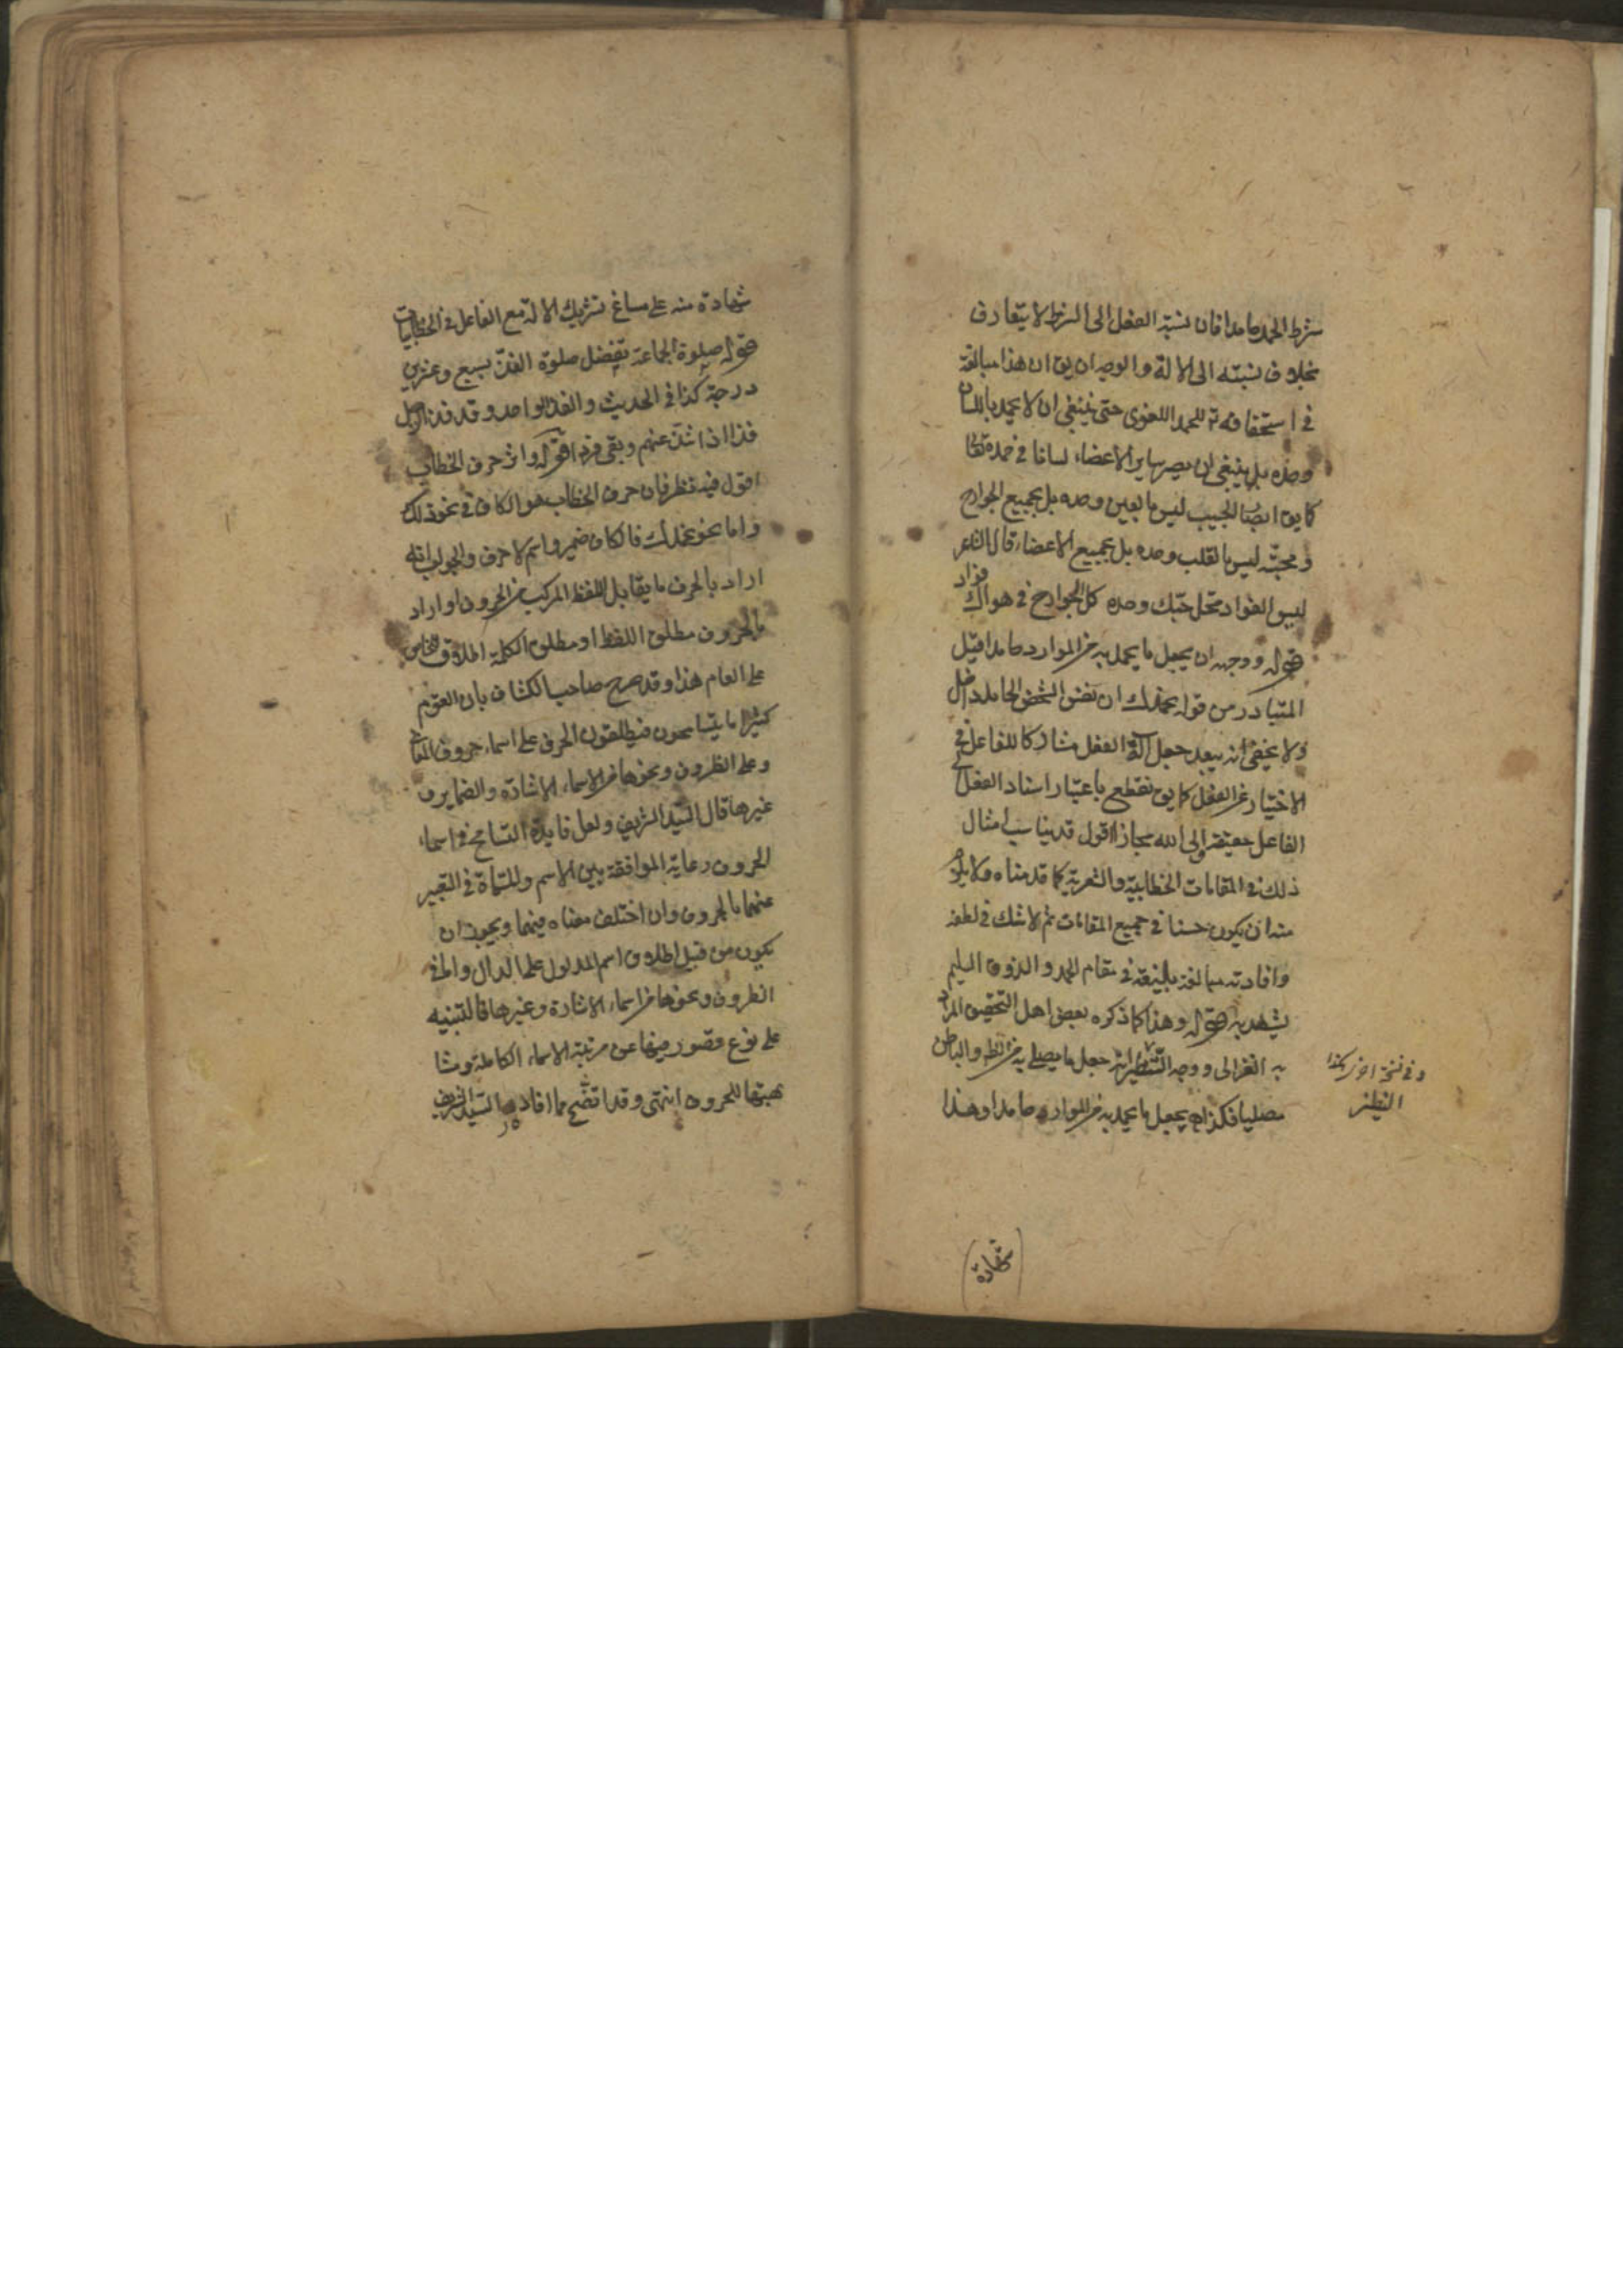 شرط الحمد حامدا فان نسبة الفعل الى الشرط لا يتعارف
بخلاف نسبته الى الالة والوجه ان يق ان هذا مبالغة
في استحقاقه تع للحمد اللغوى حتى ينبغى ان لا يحمد باللسان
وحده بل ينبغى ان يصير ساير الاعضاء لسانا في حمده تعا
كما يق ابصار الحبيب ليس بالعين وحده بل بجميع الجوارح
ومحبته ليس بالقلب وحده بل بجميع الاعضاء قال الشاعر
ليس الفواد محل حبك وحده كل الجوارح في هواك فواد
قوله ووجهه ان يجعل ما يحمد به من الموارد حامدا قيل
المتبادر من قوله بحمدك ان نفس الشخص الحامد داخل
ولا يخفى انه يبعد جعل آلة الفعل مشاركا للفاعل في
الاختيار عن الفعل كما يق نقطع باعتبار اسناد الفعل الى
الفاعل حقيقة والى الله مجازا اقول قد يناسب امثال
ذلك في المقامات الخطابية والشعرية كما قدمناه ولا يلزم
منه ان يكون حسنا في جميع المقامات ثم لا شك في لطفه
وافادته مبالغة بليغة في مقام الحمد والذوق السليم
يشهد به قوله وهذا كما ذكره بعض اهل التحقيق المراد
به الغزالى ووجه التنظير انه جعل ما يصلى به من الظاهر والباطن
مصليا فكذا يجعل ما يحمد به من الموارد حامدا وهذا
وفي نسخة اخرى هكذا
النظير
شهادة
شهادة منه على مساغ تشريك الالة مع الفاعل في الخطابيات
قوله صلوة الجماعة تفضل صلوة الفذ بسبع وعشرين
درجة كذا في الحديث والفذ الواحد وقد فذ الرجل
فذا اذا شذ عنهم وبقى فردا قوله واثر حرف الخطاب
اقول فيه نظر فان حرف الخطاب هو الكاف في نحو ذلك
واما نحو بحمدك فالكاف ضمير واسم لا حرف والجواب انه
اراد بالحرف ما يقابل اللفظ المركب من الحروف او اراد
بالحروف مطلق اللفظ او مطلق الكلمة اطلاق الخاص
على العام هذا وقد صرح صاحب الكشاف بان القوم
كثيرا ما يتسامحون فيطلقون الحرف على اسماء حروف المباني
وعلى الظروف ونحوها من الاسماء الاشارة والضماير و
غيرها قال السيد الشريف ولعل فايدة التسامح في اسماء
الحروف رعاية الموافقة بين الاسم والمسماة في التعبير
عنهما بالحروف وان اختلف معناه فيهما ويجوز ان
يكون من قبيل اطلاق اسم المدلول على الدال واما في
الظروف ونحوها من اسماء الاشارة وغيرها فالتنبيه
على نوع قصور فيها عن مرتبة الاسماء الكاملة ومشا
بهتها للحروف انتهى وقد اتضح مما افاده السيد الشريف